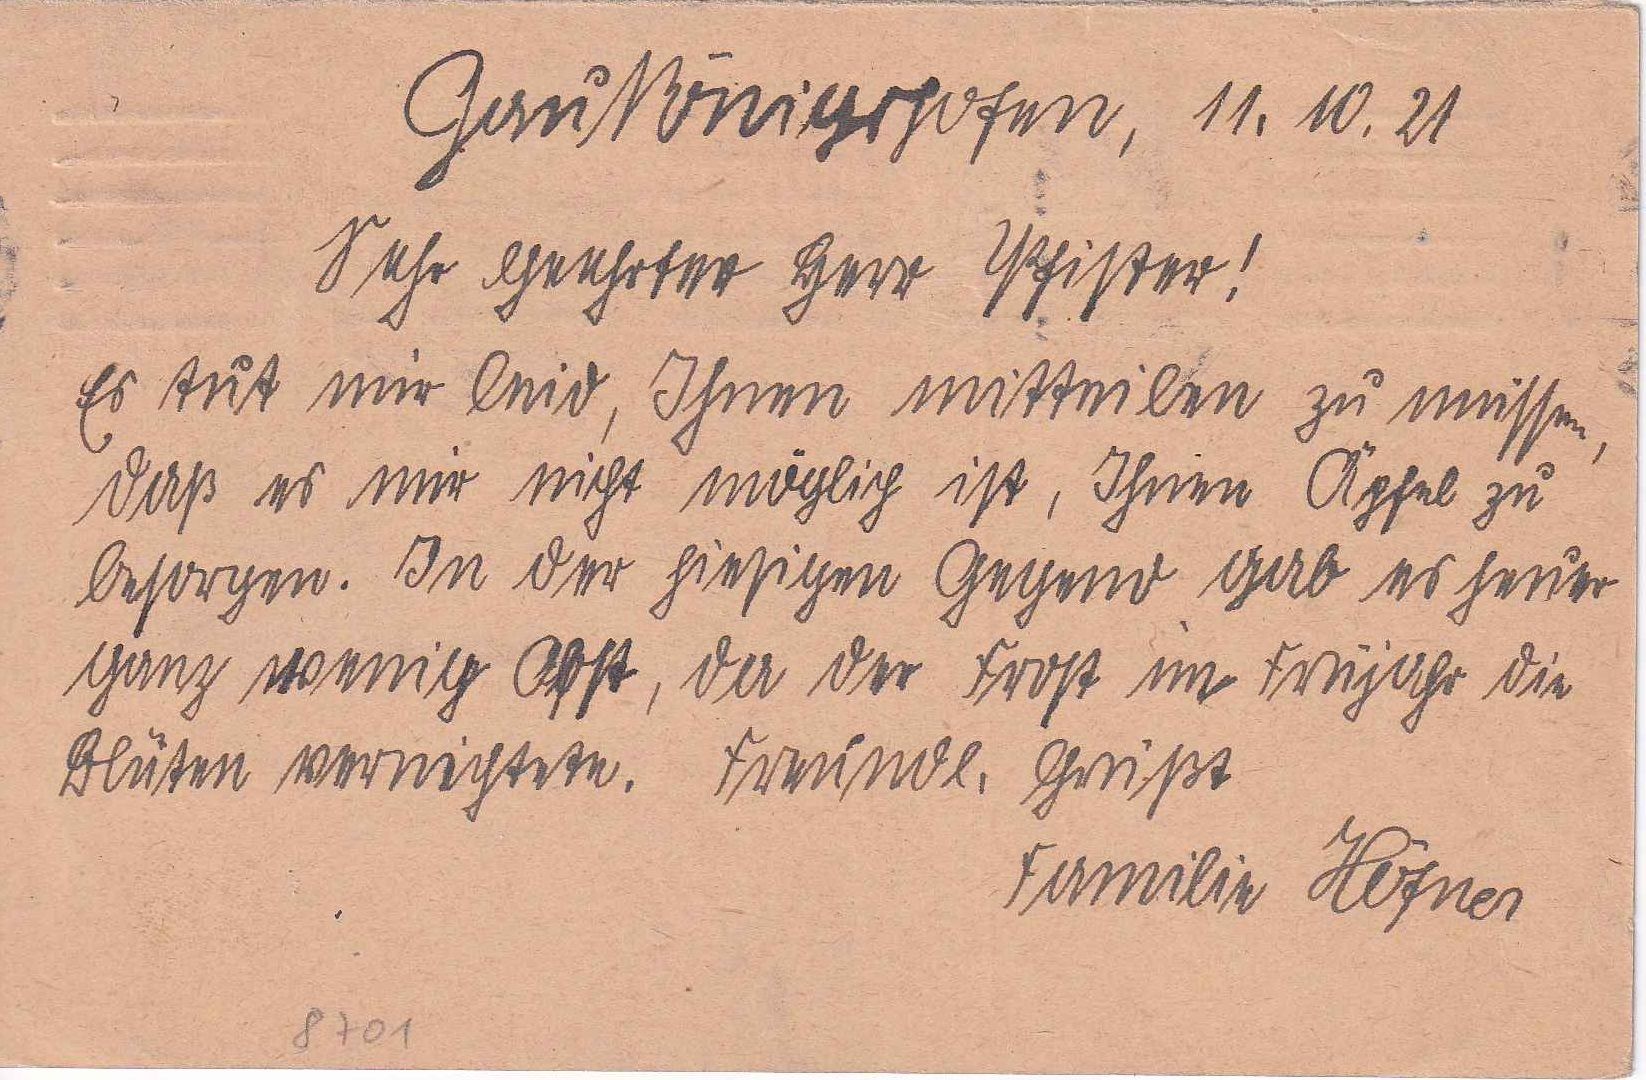 Gaukönigshofen, 11. 10. 21
Sehr Geehrter Herr Pfister!
Es tut mir leid, Ihnen mitteilen zu müssen,
daß es mir nicht möglich ist, Ihnen Äpfel zu
besorgen. In der hiesigen Gegend gab es heuer
ganz wenig Obst, da der Frost im Frühjahr die
Blüten vernichtete. Freundl. Grüßt
Familie Höfner
8701